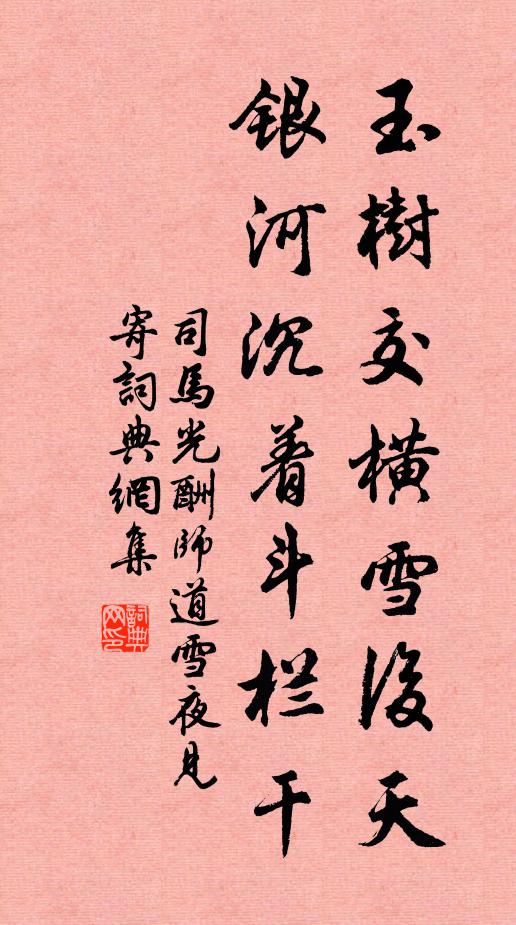 玉樹交橫雪後天
銀河沉着斗栏干
司馬光酬師道雪夜見
寄詞典網集
詞典网印